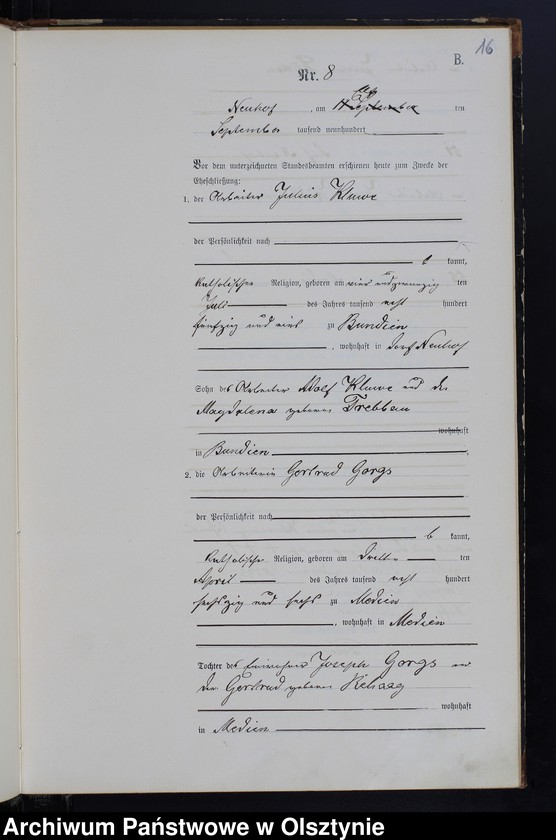 16
B.
Nr. 8
Neuhof, am ten
September tausend neunhundert
Vor dem unterzeichneten Standesbeamten erschienen heute zum Zwecke der
Eheschließung:
1. der Arbeiter Julius Kluwe
der Persönlichkeit nach
b kannt,
katholischer Religion, geboren am vier und zwanzig ten
Juli des Jahres tausend acht hundert
fünfzig und eins zu Bundien
, wohnhaft in Dorf Neuhof
Sohn des Arbeiter Adolf Kluwe und der
Magdalena geborene Trebbau
wohnhaft
in Bundien
2. die Arbeiterin Gertrud Gorgs
der Persönlichkeit nach
b kannt,
katholischer Religion, geboren am dritt ten
April des Jahres tausend acht hundert
sechszig und sechs zu Medien
, wohnhaft in Medien
Tochter des Joseph Gorgs und
der Gertrud geborene Rehaag
wohnhaft
in Medien
Archiwum Państwowe w Olsztynie